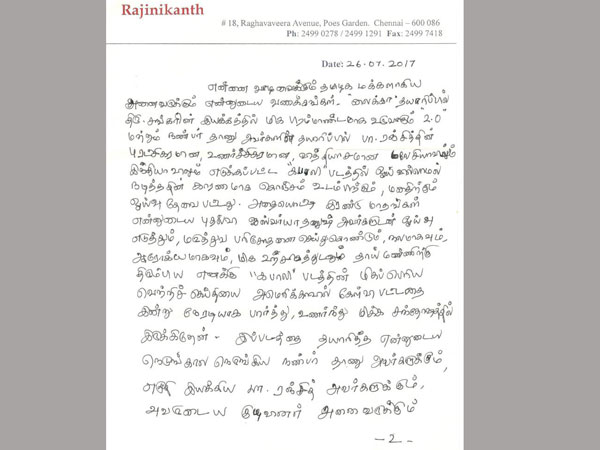 Rajinikanth
# 18, Raghavaveera Avenue, Poes Garden. Chennai – 600 086
Ph: 2499 0278 / 2499 1291 Fax: 2499 7418
Date: 26.07.2017
என்னை வாழவைக்கும் தமிழக மக்களாகிய
அனைவருக்கும் என்னுடைய வணக்கங்கள்.
திரு. சங்கரின் இயக்கத்தில் மிக பிரம்மாண்டமாக உருவாகும் "2.0"
மற்றும் நண்பர் தாணு அவர்களின் தயாரிப்பில் பா. ரஞ்சித்தின்
புரட்சிகரமான, உணர்ச்சிகரமான, வித்தியாசமான
எடுக்கப்பட்ட "கபாலி" படத்தில் ஓய்வில்லாமல்
நடித்ததின் காரணமாக கொஞ்சம் உடம்பிற்கும், மனதிற்கும்
ஓய்வு தேவைபட்டது. இரண்டு மாதங்கள்
என்னுடைய புதல்வி ஐஸ்வர்யா தனுஷ் அவர்களுடன் ஓய்வு
எடுத்தும், மருத்துவ பரிசோதனை செய்துகொண்டும், நலமாகவும்,
ஆரோக்யமாகவும், மிக உற்சாகத்துடனும் தாய் மண்ணிற்கு
திரும்பிய எனக்கு "கபாலி" படத்தின் மிகப்பெரிய
வெற்றிச் செய்தியை அமெரிக்காவில் கேள்வி பட்டதை
இன்று நேரடியாக பார்த்து, உணர்ந்து மிக்க சந்தோஷத்தில்
இருக்கிறேன். இப்படத்தை தயாரித்த என்னுடைய
நெடுங்கால நெருங்கிய நண்பர் தாணு அவர்களுக்கும்,
எழுதி இயக்கிய பா. ரஞ்சித் அவர்களுக்கும்,
அவருடைய குழுவினர் அனைவருக்கும்
– 2 –